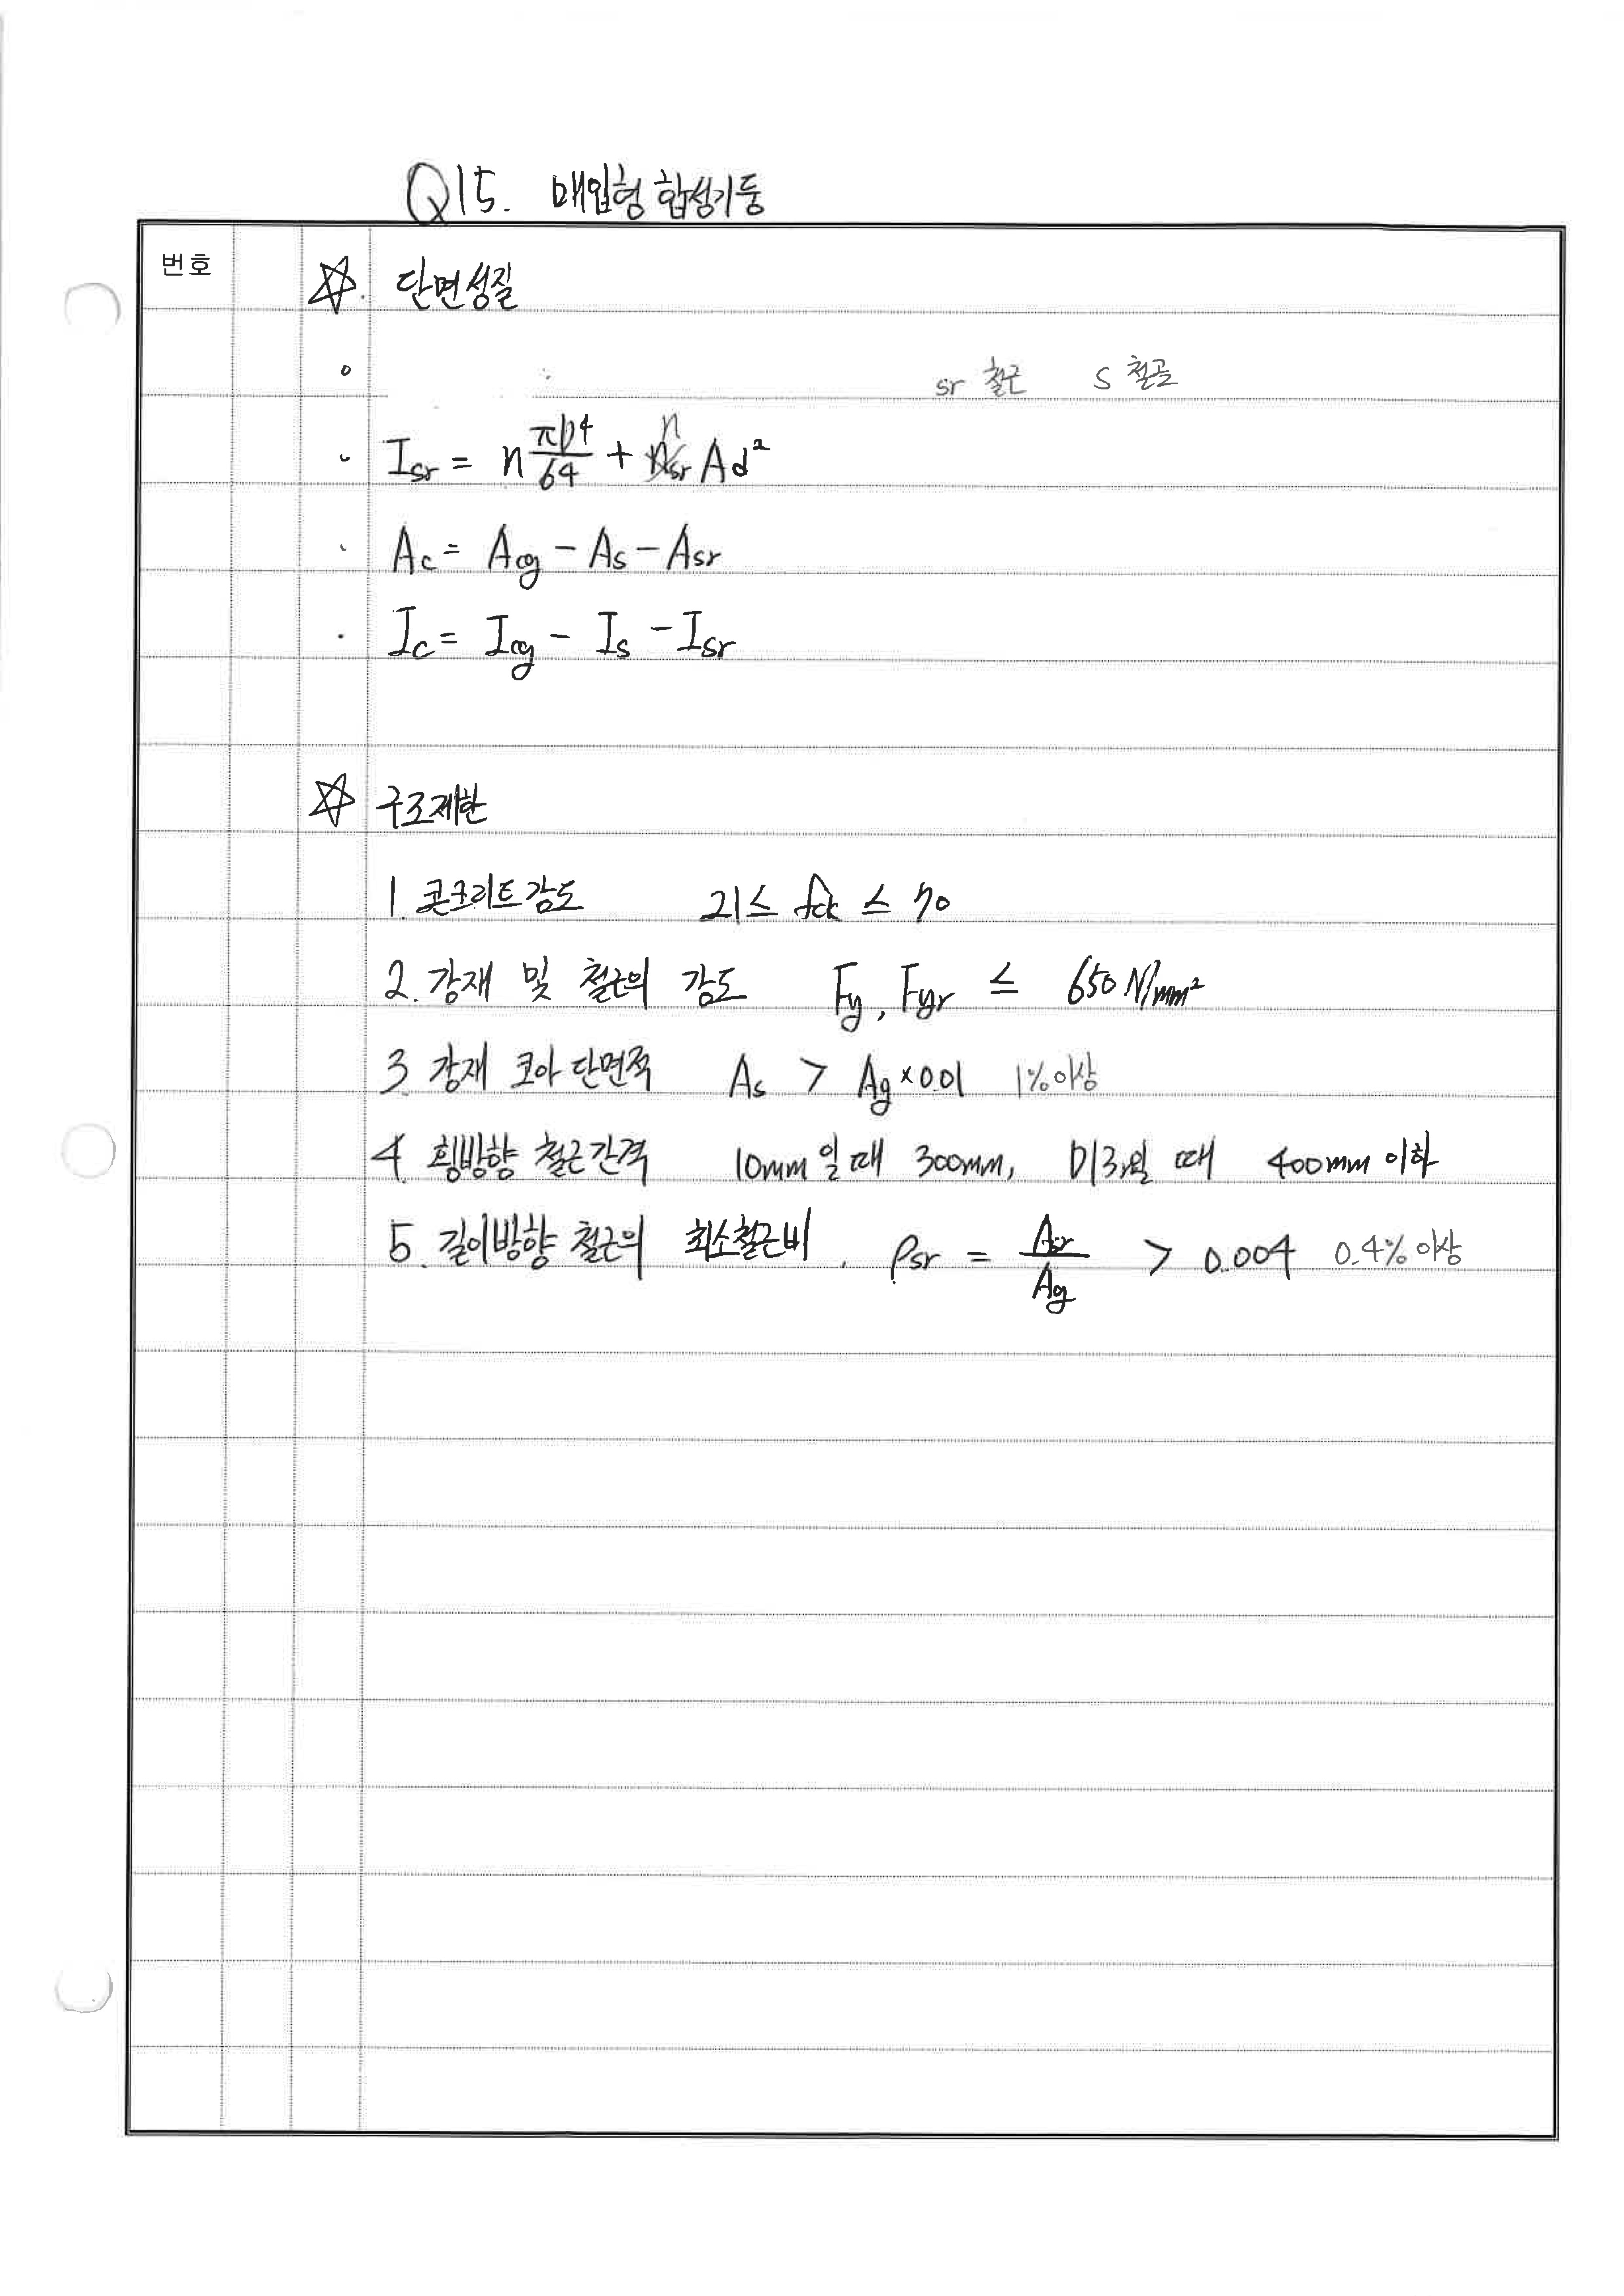 Q15. 매입형 합성기둥
번호
☆. 단면성질
sr 철근 S 철골
I_sr = n πD⁴/64 + n A d²
A_c = A_cg - A_s - A_sr
I_c = I_cg - I_s - I_sr
☆ 구조제한
1. 콘크리트강도 21 ≤ fck ≤ 70
2. 강재 및 철근의 강도 Fy, Fyr ≤ 650 N/mm²
3. 강재 코아 단면적 As > Ag × 0.01 1% 이상
4. 횡방향 철근간격 10mm일 때 300mm, D13일 때 400mm 이하
5. 길이방향 철근의 최소철근비. ρsr = Asr/Ag > 0.004 0.4% 이상